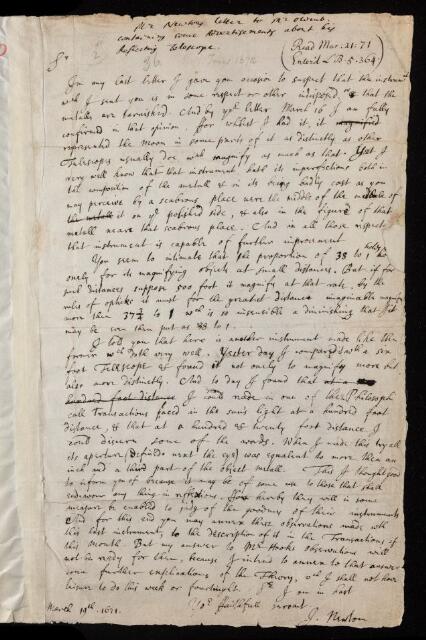 Mr Newtons letter to Mr Oldenb.
containing some Advertisements about his
Reflecting Telescope.
Read Mar. 21. 71
Enter'd L.B. 5. 364.
Sr
In my last letter I gave you occasion to suspect that the instrument
wch I sent you is in some respect or other indisposed or that the
metalls are tarnished. And by yor letter March 16 I am fully
confirmed in that opinion, ffor whilst I had it, it
represented the Moon in some parts of it as distinctly as other
Telescopes usually doe wch magnify as much as that. Yet I
very well know that that instrument hath its imperfections both in
the composition of the metall & in its being badly cast as you
may perceive by a scabrous place neare the middle of the metall of
it on ye polished side, & also in the figure of that
metall neare that scabrous place. And in all those respects
that instrument is capable of further improvement
You seem to intimate that the proportion of 38 to 1 holds
onely for its magnifying objects at small distances. But if for
such distances suppose 500 foot it magnify at that rate, by the
rules of opticks it must for the greatest distance imaginable magnify
more then 37¾ to 1 wch is so insensible a diminishing that it
may be even then put as 38 to 1.
I told you that here is another instrument made like the
former wch doth very well. Yesterday I compared it with a six
foot Telescope & found it not onely to magnify more but
also more distinctly. And to day I found that
hundred foot distance I could read in one of the Philosoph.
call Transactions placed in the suns light at a hundred foot
distance, & that at a hundred & twenty foot distance I
could discern some of the words. When I made this tryall
its aperture (defined next the eye) was equivalent to more then an
inch and a third part of the object metall. This I thought good
to inform you of because it may be of some use to those that shall
endeavour any thing in reflexions. ffor hereby they will in some
measure be enabled to judg of the goodness of their instruments
And for this end you may annex these observations made wth
this last instrument, to the description of it in the Transactions of
this month. But my answer to Mr Hooks observations will
not be ready for them, because I intend to annex to that answer
some further explications of the Theory, wch I shall not have
leisure to do this week or fourtnight. Sr I am in hast
Yor ffaithfull servant
I. Newton
March 19th. 1671.